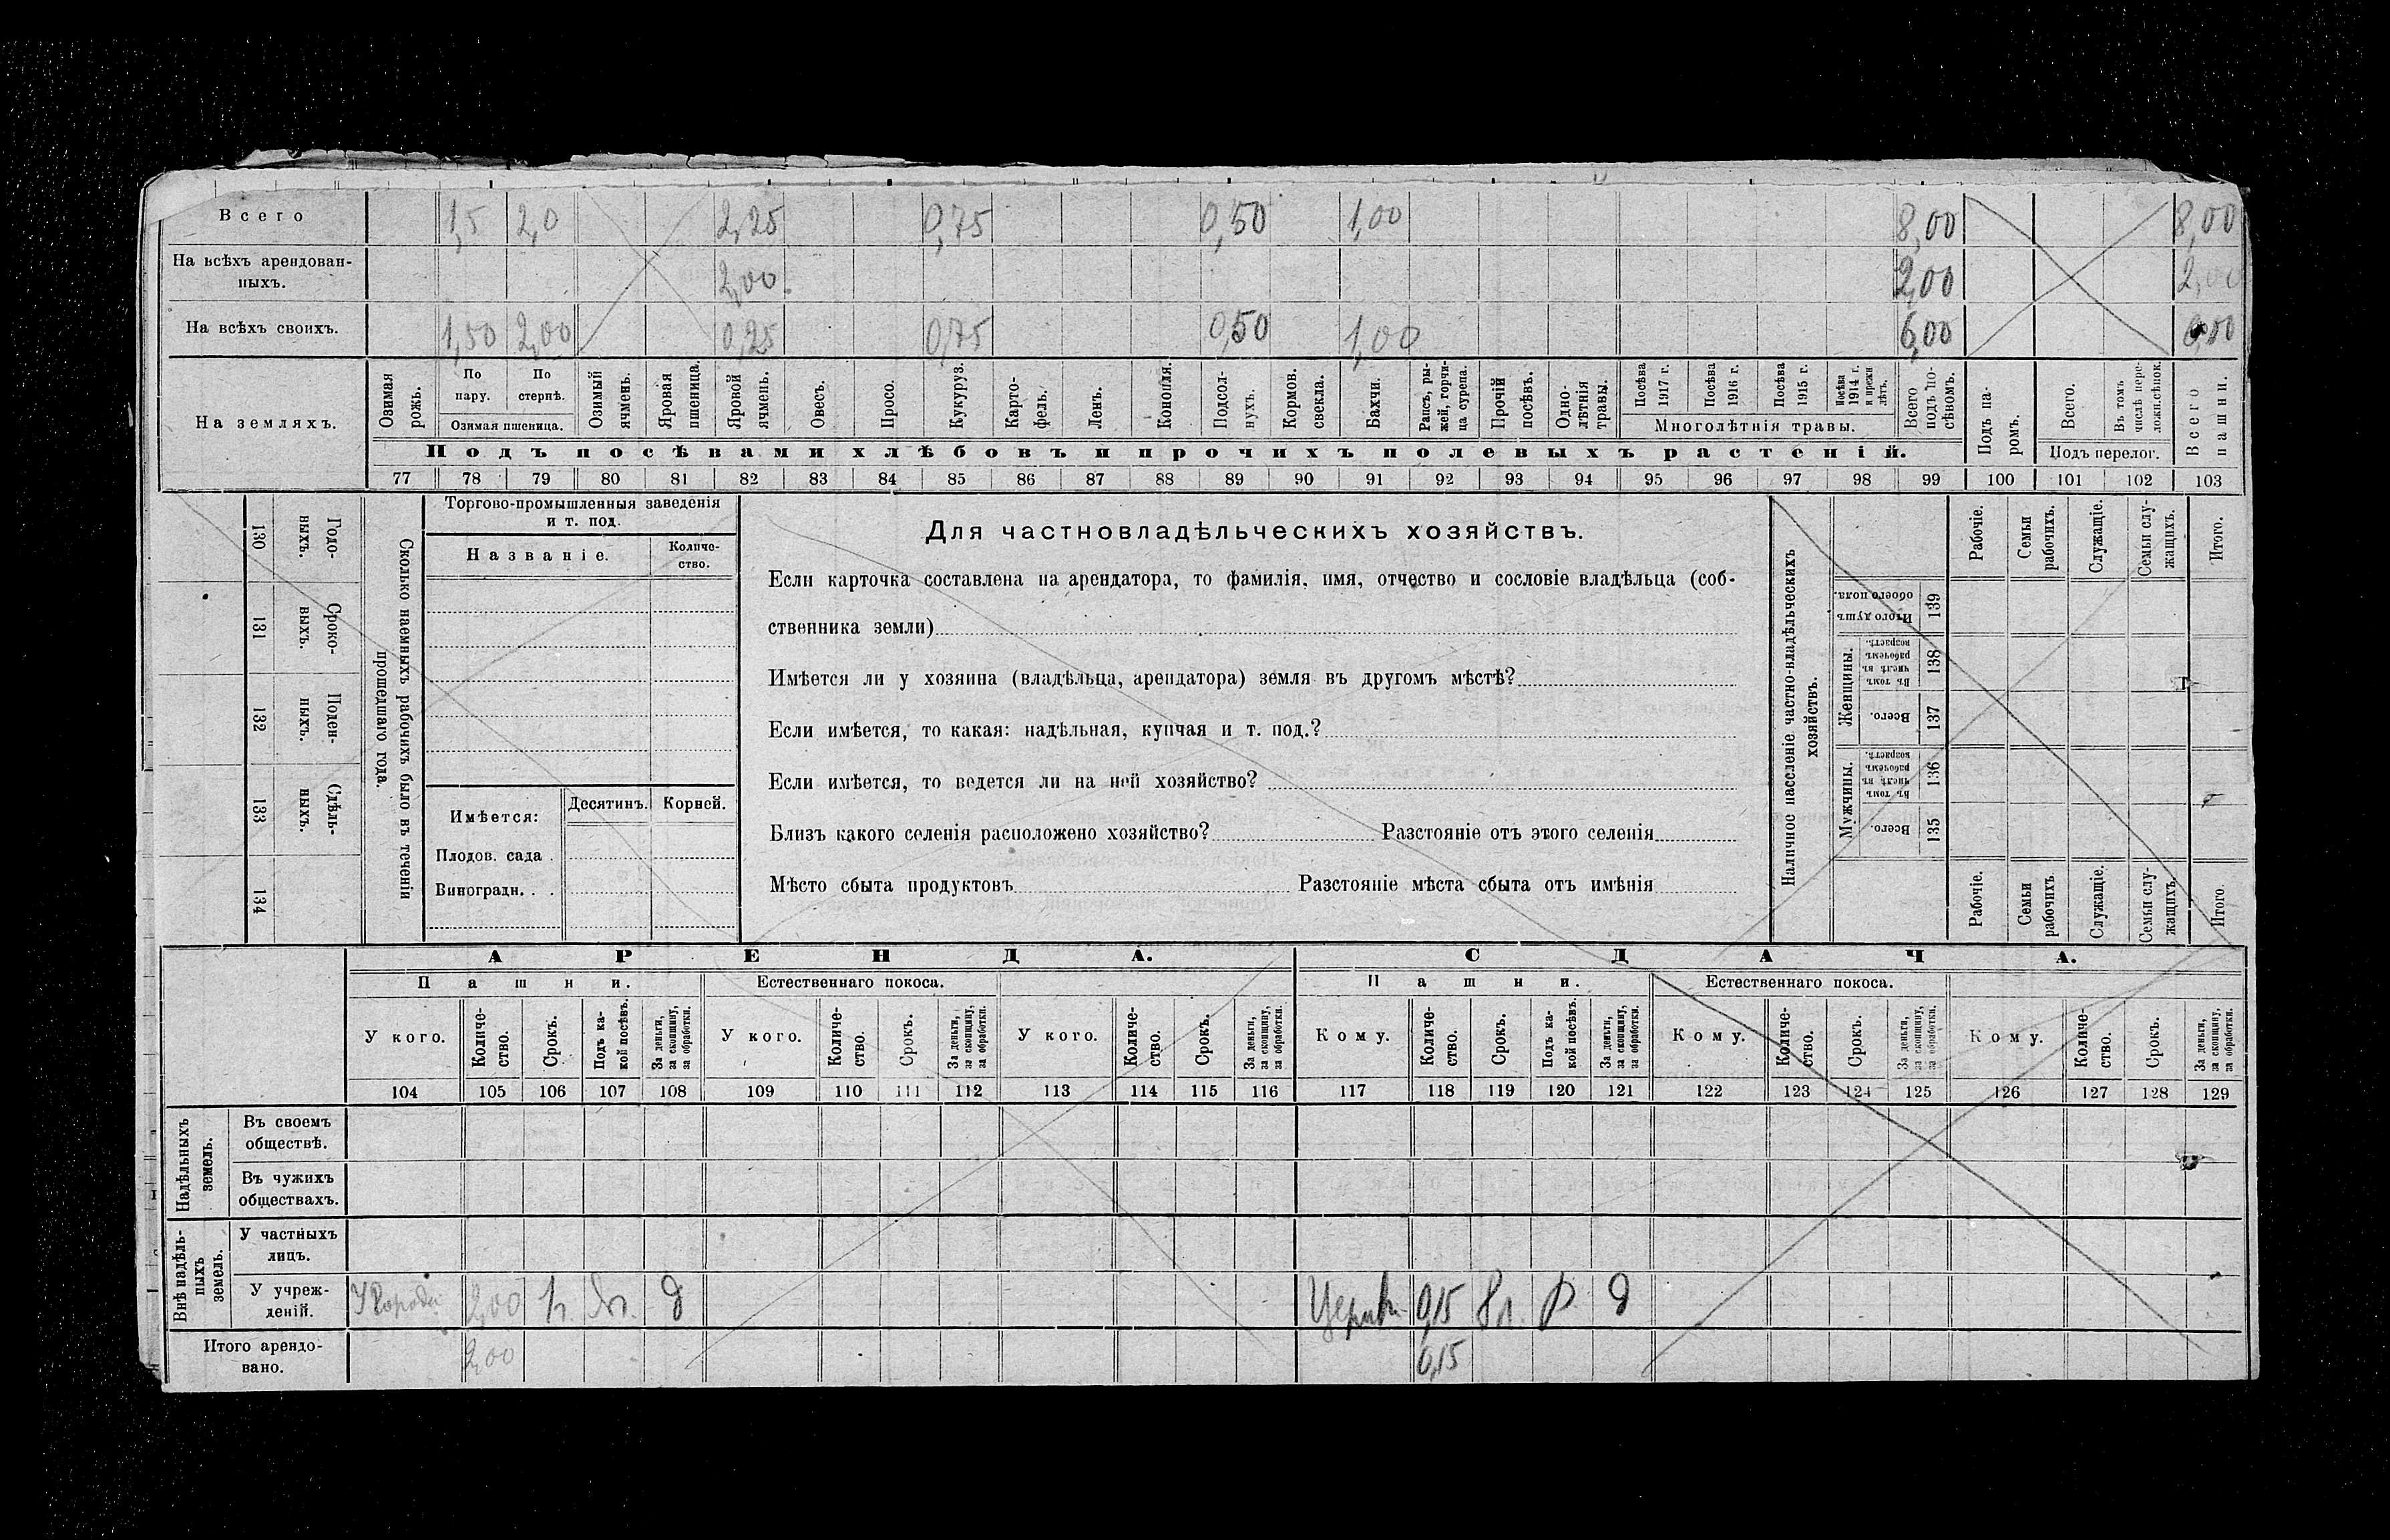 Всего 1,5 2,0 2,25 0,75 0,50 1,00 8,00 8,00
На всѣхъ арендован-
ныхъ. 2,00 2,00 2,00
На всѣхъ своихъ. 1,50 2,00 0,25 0,75 0,50 1,00 6,00
На земляхъ.
Озимая рожь.
По пару.
По стернѣ.
Озимая пшеница.
Озимый ячмень.
Яровая пшеница.
Яровой ячмень.
Овесъ.
Просо.
Кукуруз.
Карто-
фель.
Ленъ.
Конопля.
Подсол-
нухъ.
Кормов. свекла.
Бахчи.
Рапсъ, ры-
жей, горчи-
ца сурепа.
Прочій посѣвъ.
Одно-
лѣтнія травы.
Посѣва 1917 г.
Посѣва 1916 г.
Посѣва 1915 г.
Посѣва 1914 г. и прежн лѣтъ.
Многолѣтнія травы.
Всего подъ по-
сѣвомъ.
Подъ па-
ромъ.
Всего.
Въ томъ числѣ пере-
ложн.сѣнок.
Подъ перелог.
Всего пашни.
Подъ посѣвами хлѣбовъ и прочихъ полевыхъ растеній.
77 78 79 80 81 82 83 84 85 86 87 88 89 90 91 92 93 94 95 96 97 98 99 100 101 102 103
130 Годо-
ныхъ.
131 Сроко-
выхъ.
132 Поден-
ныхъ.
133 Сдѣль-
ныхъ.
134
Сколько наемныхъ рабочихъ было въ теченіи
прошедшаго года.
Торгово-промышленныя заведенія
и т. под.
Названіе.
Количе-
ство.
Имѣется:
Десятинъ. Корней.
Плодов. сада .
Виноградн. . .
Для частновладѣльческихъ хозяйствъ.
Если карточка составлена на арендатора, то фамилія, имя, отчество и сословіе владѣльца (соб-
ственника земли)
Имѣется ли у хозяина (владѣльца, арендатора) земля въ другомъ мѣстѣ?
Если имѣется, то какая: надѣльная, купчая и т. под.?
Если имѣется, то ведется ли на ней хозяйство?
Близъ какого селенія расположено хозяйство? Разстояніе отъ этого селенія
Мѣсто сбыта продуктовъ Разстояніе мѣста сбыта отъ имѣнія
Наличное населеніе частно-владѣльческихъ
хозяйствъ.
Рабочіе.
Семьи рабочихъ.
Служащіе.
Семьи слу-
жащихъ.
Итого.
Итого душъ обоего пола. 139
Женщины.
Въ томъ числѣ въ рабочемъ возрастѣ. 138
Всего. 137
Мужчины.
Въ томъ числѣ въ рабочемъ возрастѣ. 136
Всего. 135
Рабочіе.
Семьи рабочихъ
Служащіе.
Семьи слу-
жащихъ.
Итого.
АРЕНДА. СДАЧА.
Пашни. Естественнаго покоса. Пашни. Естественнаго покоса.
У кого.
Количе-
ство.
Срокъ.
Подъ ка-
кой посѣвъ.
За деньги,
за скопщину,
за обработки.
У кого.
Количе-
ство.
Срокъ.
За деньги,
за скопщину,
за обработки.
У кого.
Количе-
ство.
Срокъ.
За деньги,
за скопщину,
за обработки.
Кому.
Количе-
ство.
Срокъ.
Подъ ка-
кой посѣвъ.
За деньги,
за скопщину,
за обработки.
Кому.
Количе-
ство.
Срокъ.
За деньги,
за скопщину,
за обработки.
Кому.
Количе-
ство.
Срокъ.
За деньги,
за скопщину,
за обработки.
104 105 106 107 108 109 110 111 112 113 114 115 116 117 118 119 120 121 122 123 124 125 126 127 128 129
Надѣльныхъ
земель.
Въ своемъ
обществѣ.
Въ чужихъ
обществахъ.
Внѣ надѣль-
ныхъ
земель.
У частныхъ
лицъ.
У учреж-
деній. 2,00 д 0,15 8 л. д
Итого арендо-
вано. 2,00 0,15